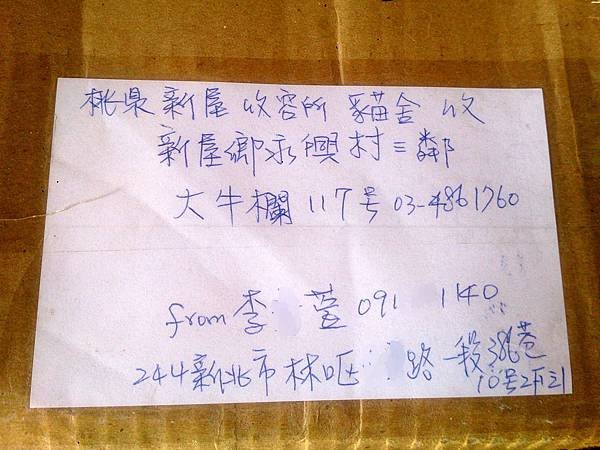 桃県新屋收容所 貓舍 收
新屋鄉永興村三鄰
大牛欄117号 03-4861760
from 李 萱 091 1140
244新北市林口区 路一段386巷
10号2F之1